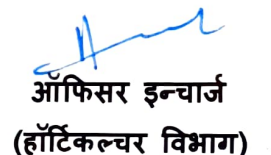 ऑफिसर इन्चार्ज
(हॉर्टिकल्चर विभाग)